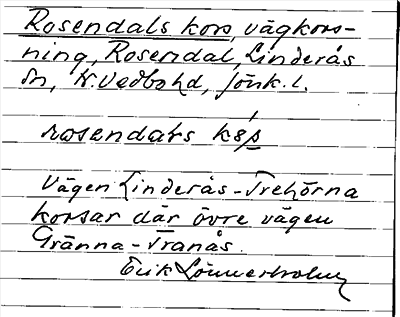 Rosendals kors, vägkors-
ning, Rosendal, Linderås
sn, N. Vedbo hd, Jönk. l.
rosendals
Vägen Linderås-Trehörna
korsar där övre vägen
Gränna-Tranås.
Erik Lönnerholm